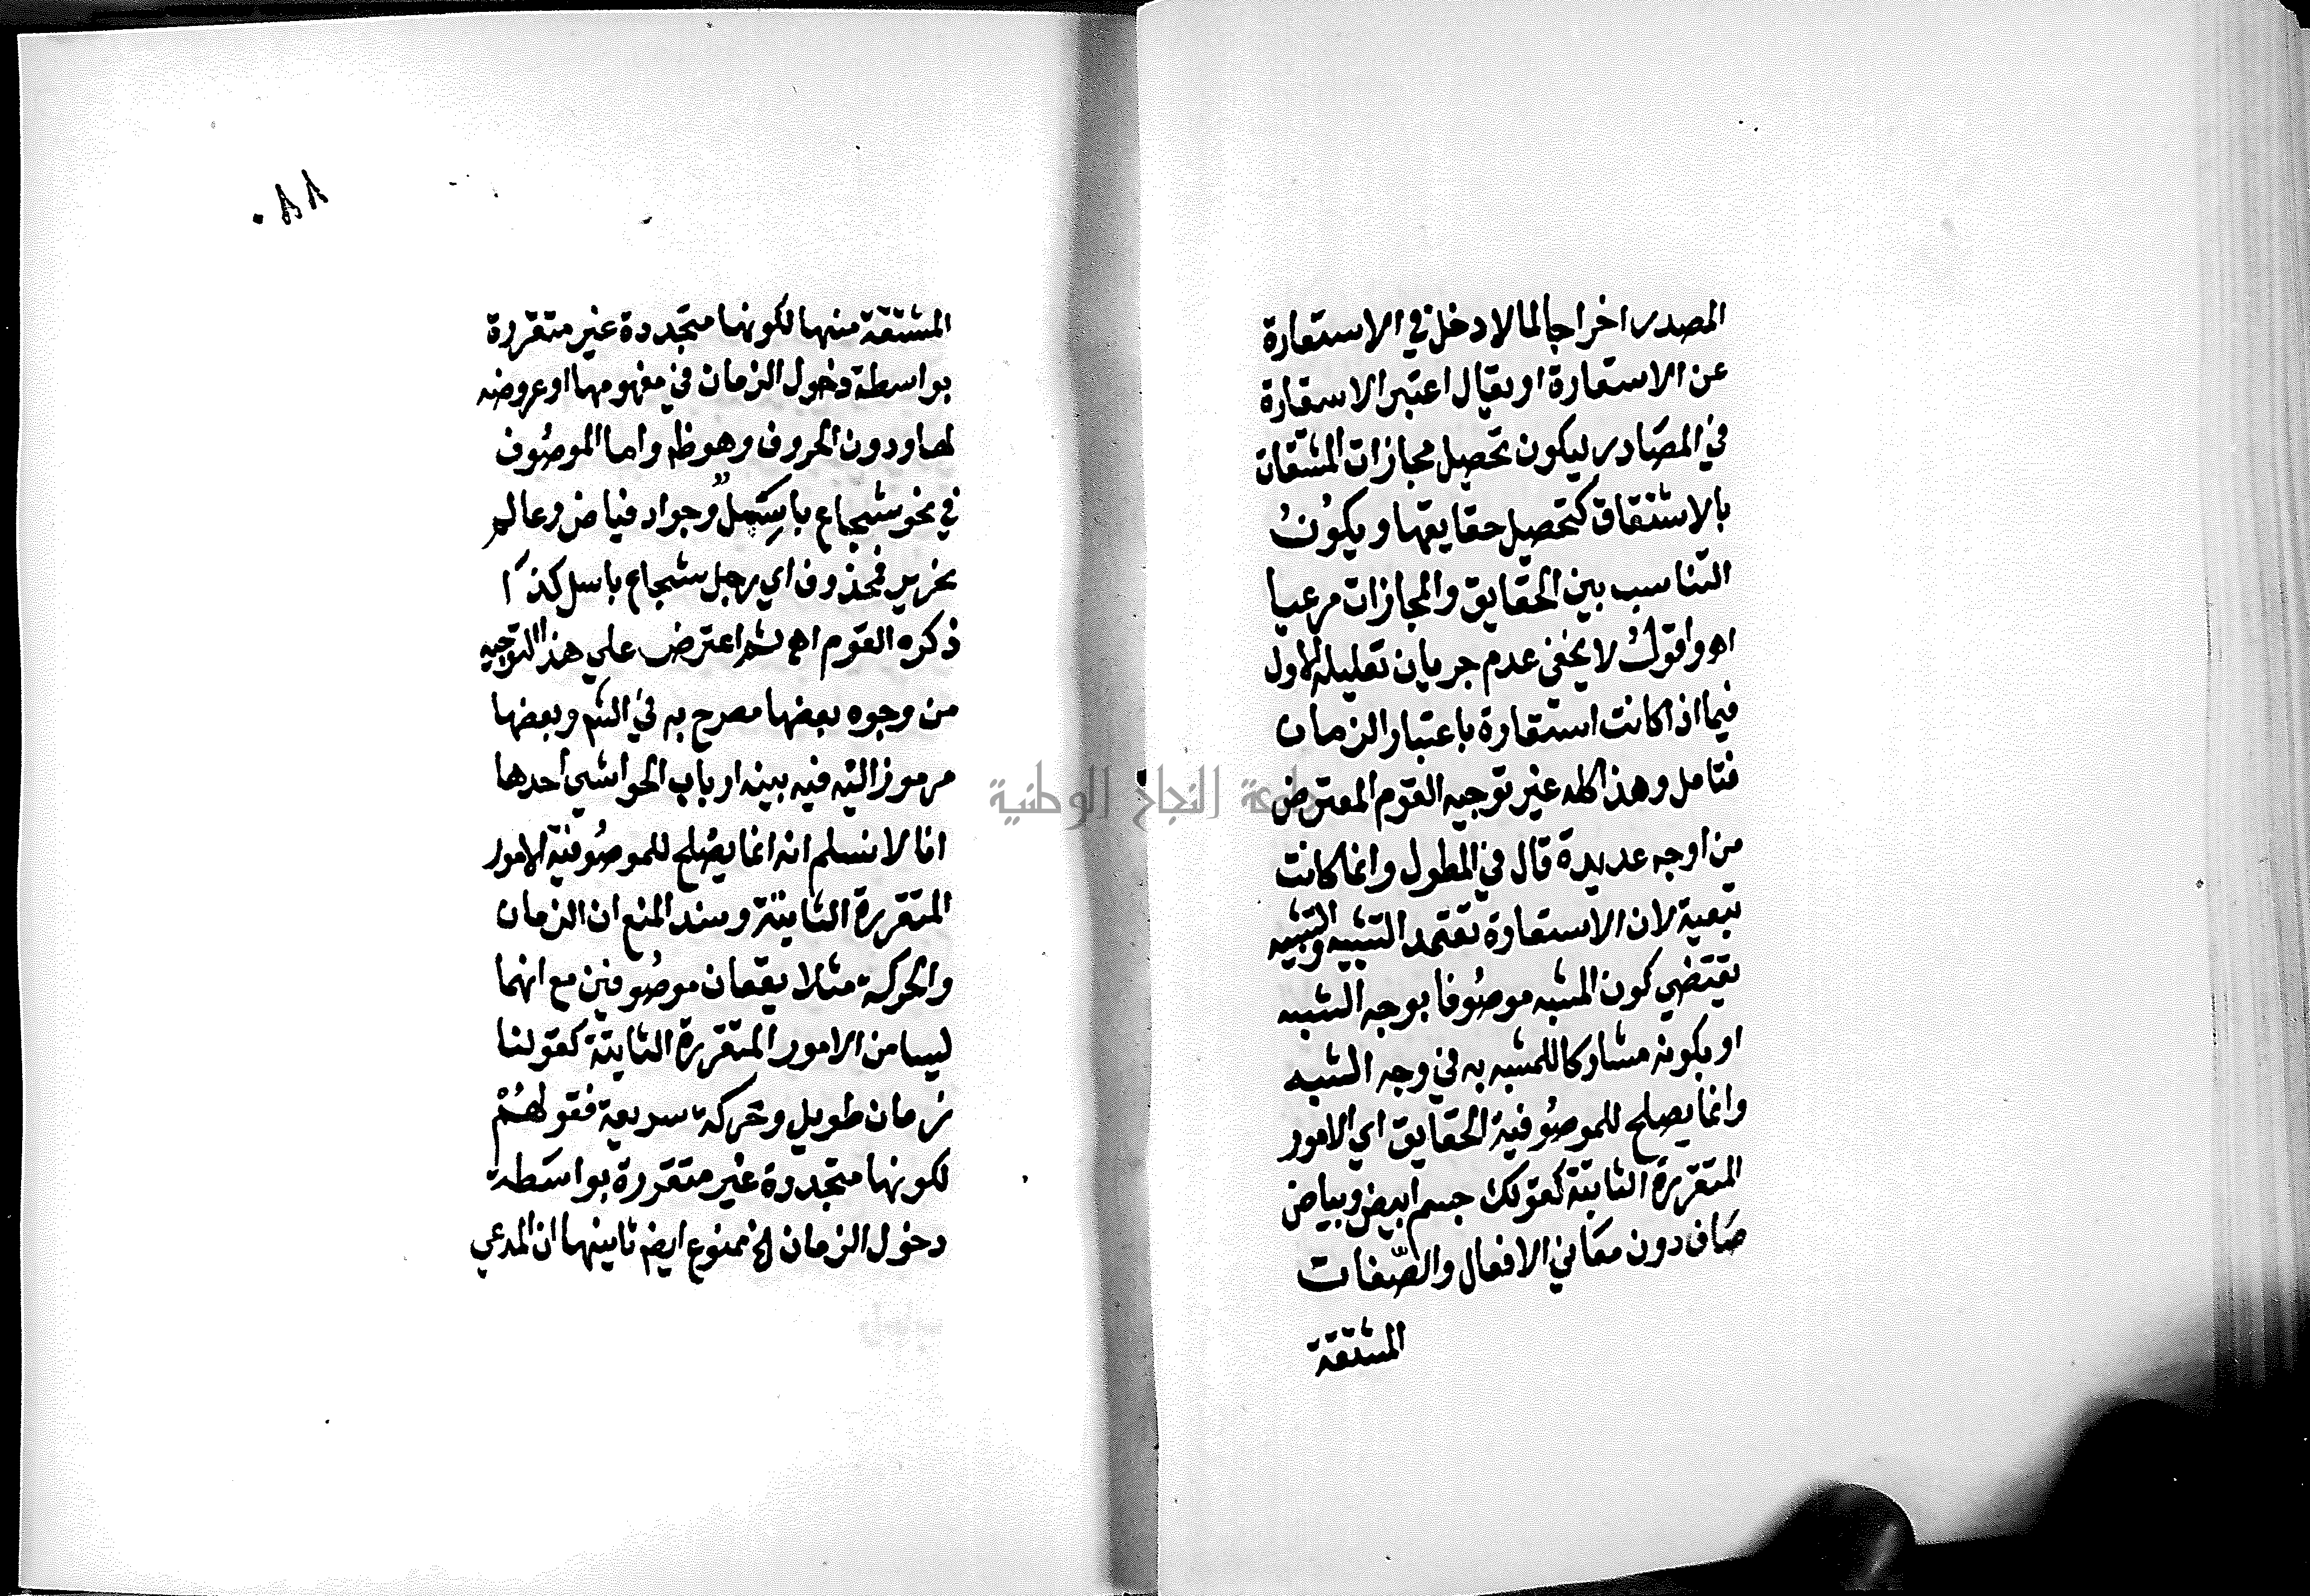 المصدر اخراجا لما لا دخل في الاستعارة
عن الاستعارة او يقال اعتبر الاستعارة
في المصادر ليكون تحصيل مجازات المشتقات
بالاشتقاق كتحصيل حقايقها ويكون
التناسب بين الحقايق والمجازات مرعيا
اه واقول لا يخفى عدم جريان تعليله الاول
فيما اذا كانت استعارة باعتبار الزمان
فتامل وهذا كله غير توجيه القوم المعترض
من اوجه عديدة قال في المطول وانما كانت
تبعية لان الاستعارة تعتمد التشبيه والتشبيه
يقتضي كون المشبه موصوفا بوجه الشبه
او بكونه مشاركا للمشبه به في وجه الشبه
وانما يصلح للموصوفية الحقايق اي الامور
المتقررة الثابتة كقولك جسم ابيض وبياض
صاف دون معاني الافعال والصفات
المشتقة
٠٨٨
المشتقة منها لكونها متجددة غير متقررة
بواسطة دخول الزمان في مفهومها او عروضه
لها ودون الحروف وهو ظه واما الموصوف
في نحو شجاع باسل وجواد فياض وعالم
نحرير فمحذوف اي رجل شجاع باسل كذا
ذكره القوم اه ثم اعترض علي هذا التوجيه
من وجوه بعضها مصرح به في الشم وبعضها
مرموز اليه فيه بينه ارباب الحواشي احدها
انا لا نسلم انه انما يصلح للموصوفية الامور
المتقررة الثابتة وسند المنع ان الزمان
والحركة مثلا يقعان موصوفين مع انهما
ليسا من الامور المتقررة الثابتة كقولنا
زمان طويل وحركة سريعة فقولهم
لكونها متجددة غير متقررة بواسطة
دخول الزمان الخ ممنوع ايضه ثانيها ان المدعي
جامعة النجاح الوطنية